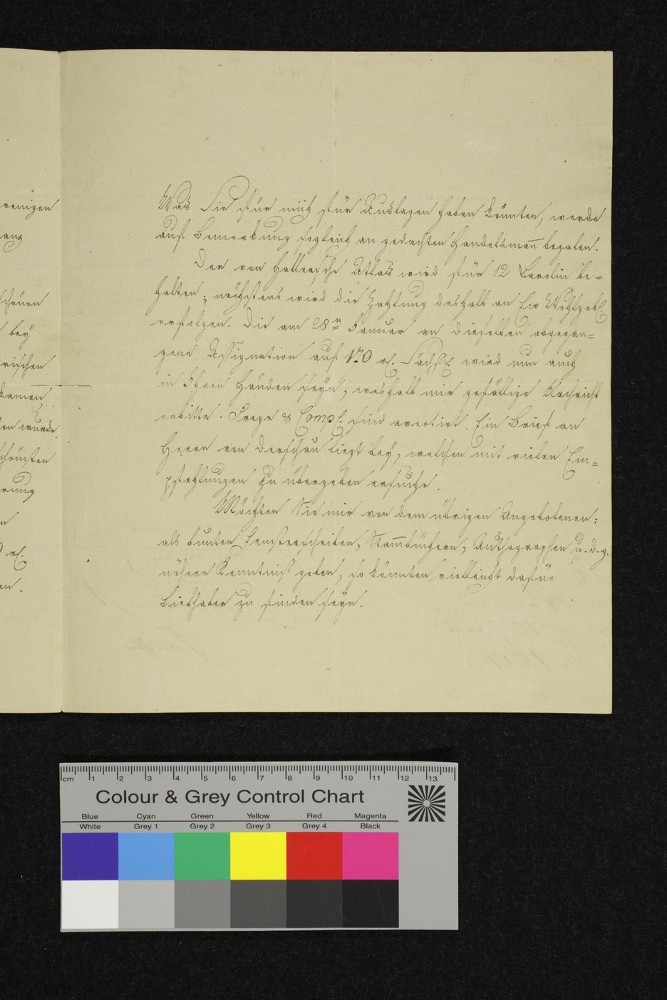 wenigen
ang
schönen
bey
Was Sie für mich für Auslagen haben könnten, werde
auf Bemerkung sogleich an gedachten Handelsmann bezalen.
Der von Hallerische Atlas wird für 12 Carolin be=
halten; nächstens wird die Zahlung deshalb an Ew Wohlgeb.
erfolgen. Die am 28n Januar an dieselben abgegan=
gene Assignation auf 170 rh. Sächs. wird nun auch
in Ihren Händen seyn, weshalb mir gefällige Nachricht
erbitte. Frege & Comp. sind avertirt. Ein Brief an
Herrn von Derschau liegt bey, welchen mit vielen Em=
pfehlungen zu übergeben ersuche.
Möchten Sie mir von dem übrigen Angebotenen:
als bunten Fensterscheiben, Stammbüchern, Authographen u. d. g.
nähere Kenntniß geben, so könnten vielleicht dafür
Liebhaber zu finden seyn.
cm 1 2 3 4 5 6 7 8 9 10 11 12 13
Colour & Grey Control Chart
Blue Cyan Green Yellow Red Magenta
White Grey 1 Grey 2 Grey 3 Grey 4 Black